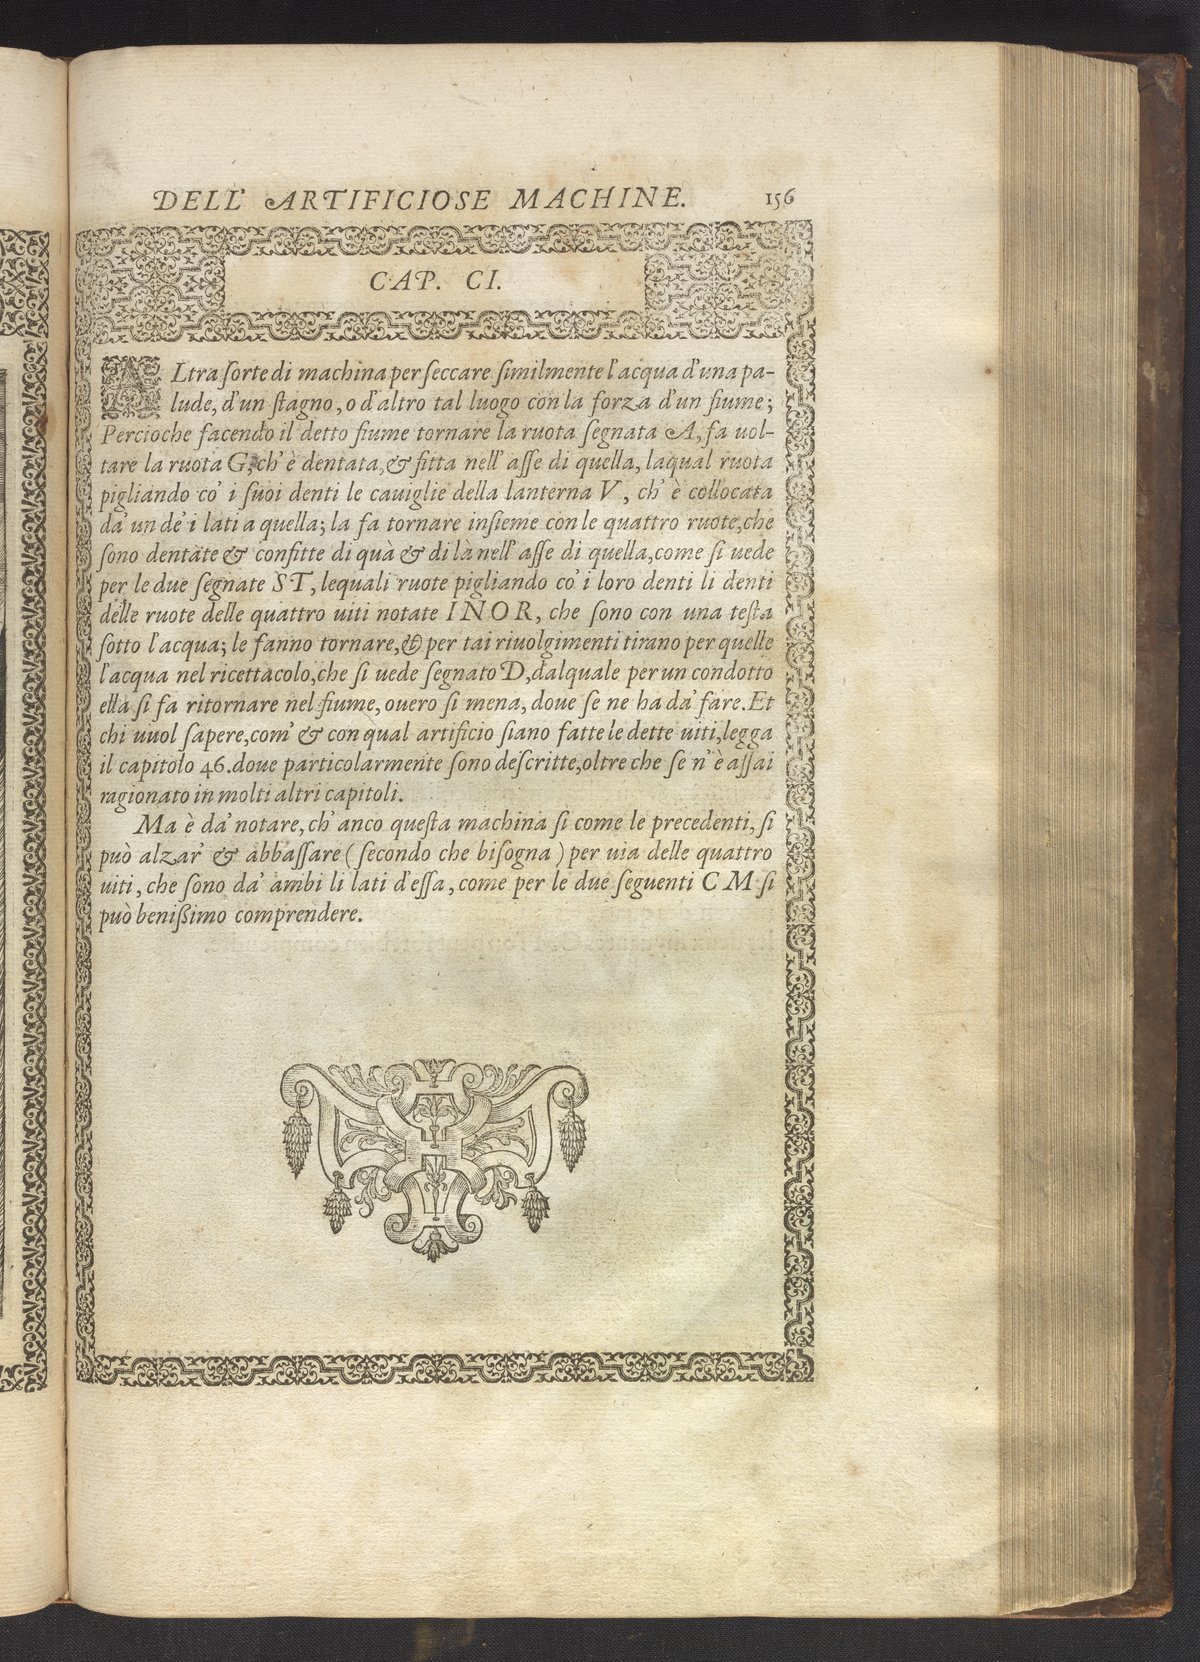 DELL' ARTIFICIOSE MACHINE. 156
CAP. CI.
ALtra sorte di machina per seccare similmente l'acqua d'una pa-
lude, d'un stagno, o d'altro tal luogo con la forza d'un fiume;
Percioche facendo il detto fiume tornare la ruota segnata A, fa uol-
tare la ruota G, ch'è dentata, & fitta nell'asse di quella, laqual ruota
pigliando co' i suoi denti le cauiglie della lanterna V, ch'è collocata
da' un de' i lati a quella; la fa tornare insieme con le quattro ruote, che
sono dentate & confitte di quà & di là nell'asse di quella, come si uede
per le due segnate ST, lequali ruote pigliando co' i loro denti li denti
delle ruote delle quattro uiti notate INOR, che sono con una testa
sotto l'acqua; le fanno tornare, & per tai riuolgimenti tirano per quelle
l'acqua nel ricettacolo, che si uede segnato D, dalquale per un condotto
ella si fa ritornare nel fiume, ouero si mena, doue se ne ha da' fare. Et
chi uuol sapere, com' & con qual artificio siano fatte le dette uiti, legga
il capitolo 46. doue particolarmente sono descritte, oltre che se n'è assai
ragionato in molti altri capitoli.
Ma è da' notare, ch'anco questa machina si come le precedenti, si
può alzar' & abbassare (secondo che bisogna) per uia delle quattro
uiti, che sono da' ambi li lati d'essa, come per le due seguenti C M si
può benißimo comprendere.